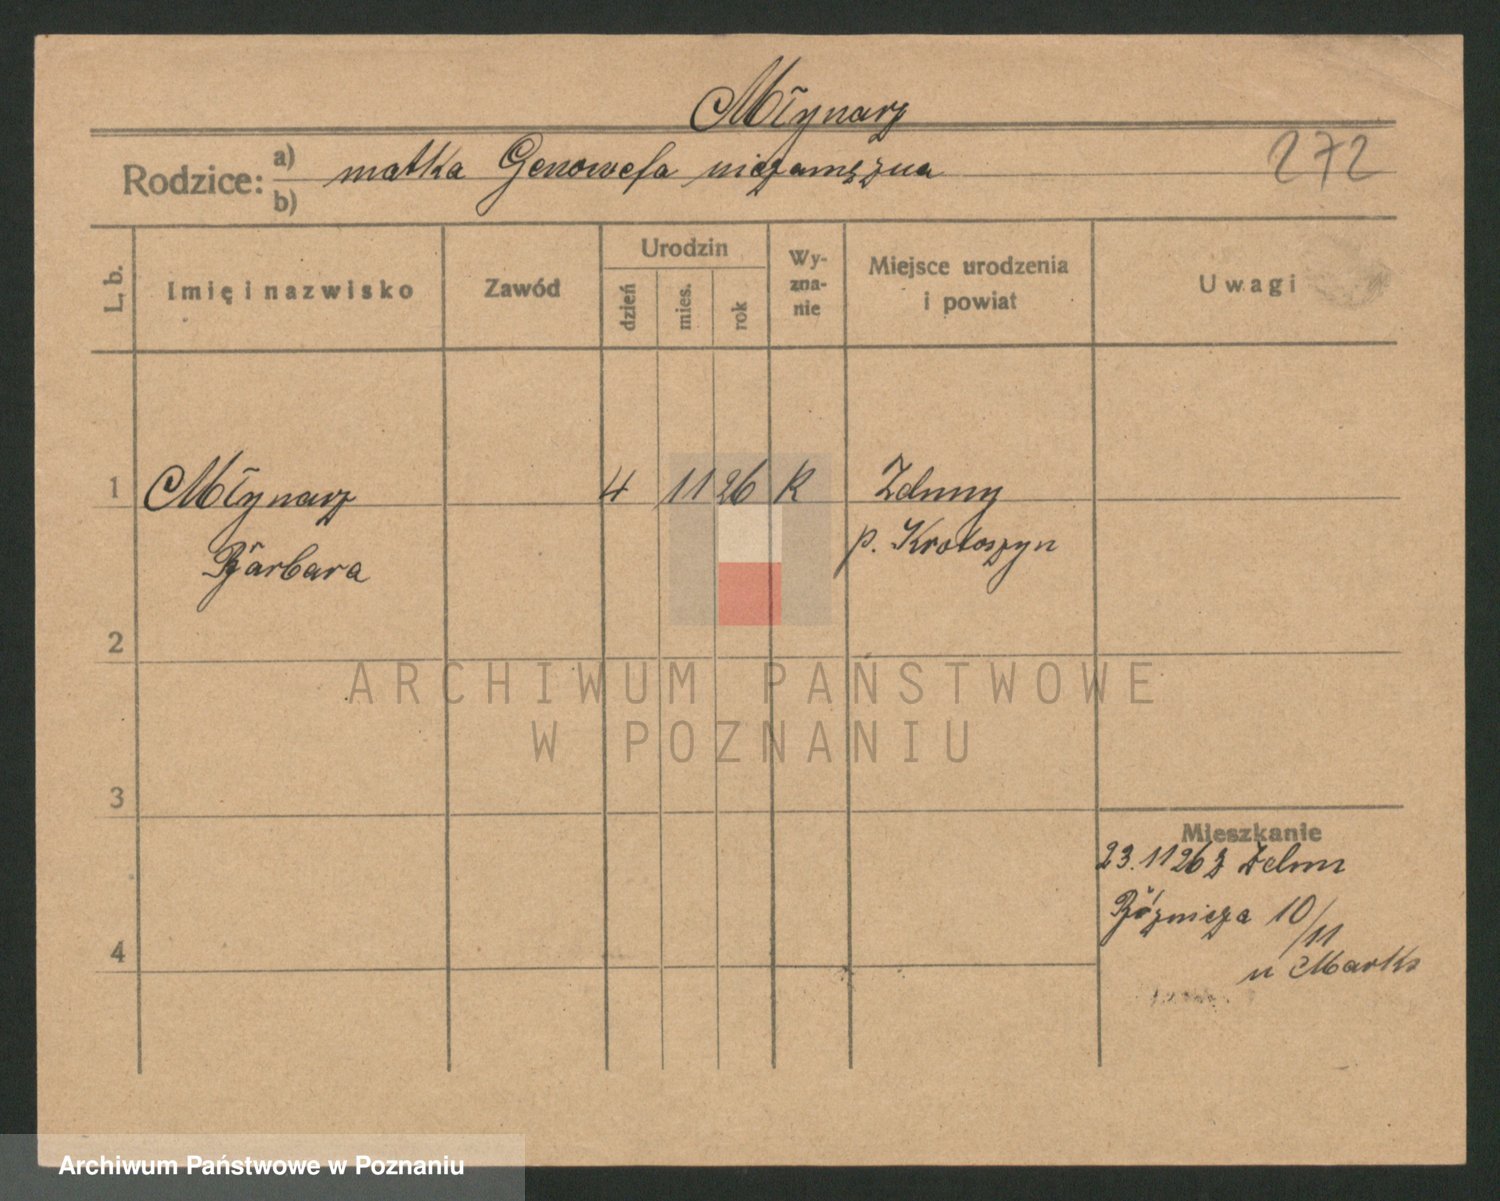 Młynarz
Rodzice: a) matka Genowefa niezamężna
b)
272
L. b.
Imię i nazwisko
Zawód
Urodzin
dzień
mies.
rok
Wy-
zna-
nie
Miejsce urodzenia
i powiat
Uwagi
1 Młynarz 4 11 26 K Zduny
Barbara p. Krotoszyn
2
3
4
Mieszkanie
23.11 26 z Zdun
10/11
u Marks
ARCHIWUM PAŃSTWOWE
W POZNANIU
Archiwum Państwowe w Poznaniu